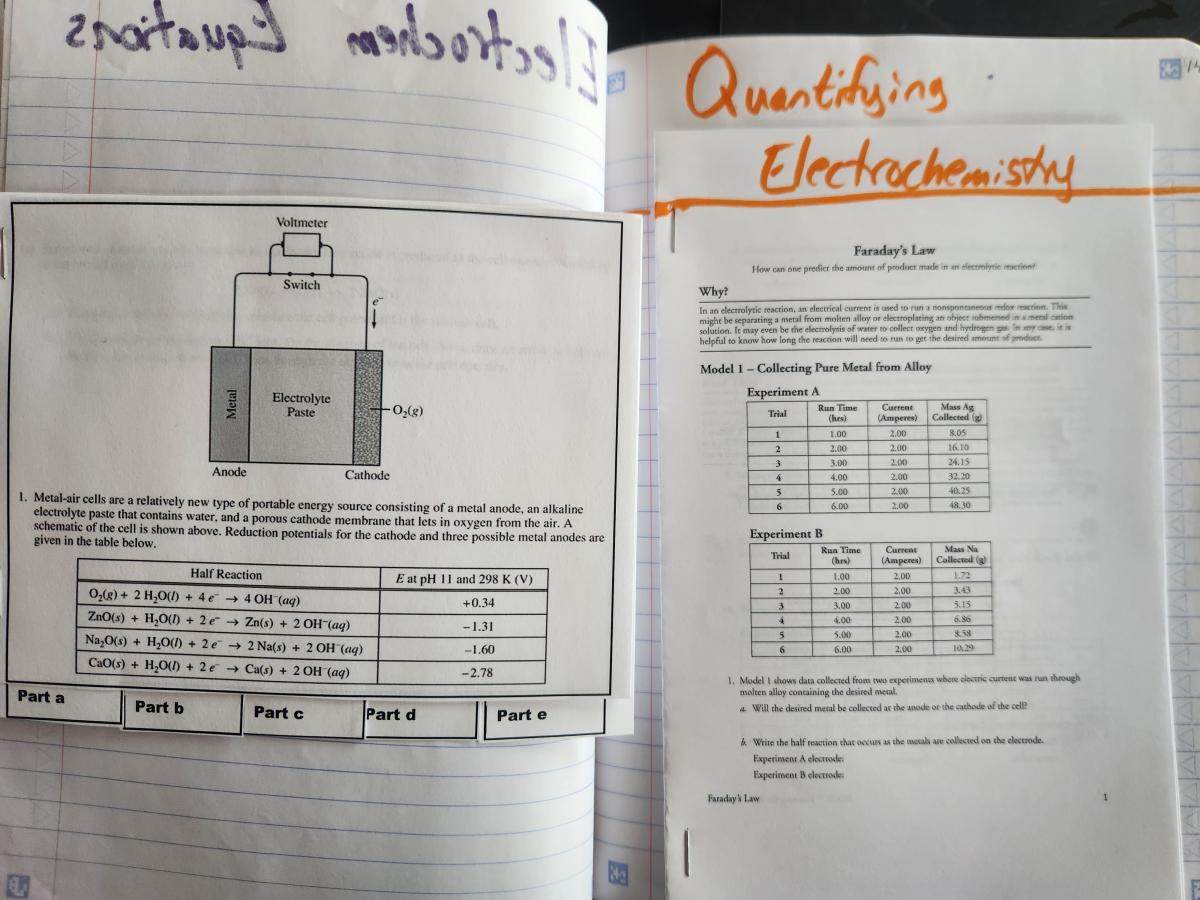 Electrochem Equations
Voltmeter
Switch
e⁻
Metal
Electrolyte
Paste
O₂(g)
Anode
Cathode
1. Metal-air cells are a relatively new type of portable energy source consisting of a metal anode, an alkaline
electrolyte paste that contains water, and a porous cathode membrane that lets in oxygen from the air. A
schematic of the cell is shown above. Reduction potentials for the cathode and three possible metal anodes are
given in the table below.
Half Reaction E at pH 11 and 298 K (V)
O₂(g) + 2 H₂O(l) + 4 e⁻ → 4 OH⁻(aq) +0.34
ZnO(s) + H₂O(l) + 2 e⁻ → Zn(s) + 2 OH⁻(aq) −1.31
Na₂O(s) + H₂O(l) + 2 e⁻ → 2 Na(s) + 2 OH⁻(aq) −1.60
CaO(s) + H₂O(l) + 2 e⁻ → Ca(s) + 2 OH⁻(aq) −2.78
Part a
Part b
Part c
Part d
Part e
Quantifying
Electrochemistry
Faraday's Law
How can one predict the amount of product made in an electrolytic reaction?
Why?
In an electrolytic reaction, an electrical current is used to run a nonspontaneous redox reaction. This
might be separating a metal from molten alloy or electroplating an object submersed in a metal cation
solution. It may even be the electrolysis of water to collect oxygen and hydrogen gas. In any case, it is
helpful to know how long the reaction will need to run to get the desired amount of product.
Model 1 – Collecting Pure Metal from Alloy
Experiment A
Trial Run Time (hrs) Current (Amperes) Mass Ag Collected (g)
1 1.00 2.00 8.05
2 2.00 2.00 16.10
3 3.00 2.00 24.15
4 4.00 2.00 32.20
5 5.00 2.00 40.25
6 6.00 2.00 48.30
Experiment B
Trial Run Time (hrs) Current (Amperes) Mass Na Collected (g)
1 1.00 2.00 1.72
2 2.00 2.00 3.43
3 3.00 2.00 5.15
4 4.00 2.00 6.86
5 5.00 2.00 8.58
6 6.00 2.00 10.29
1. Model 1 shows data collected from two experiments where electric current was run through
molten alloy containing the desired metal.
a. Will the desired metal be collected at the anode or the cathode of the cell?
b. Write the half reaction that occurs as the metals are collected on the electrode.
Experiment A electrode:
Experiment B electrode:
Faraday's Law 1